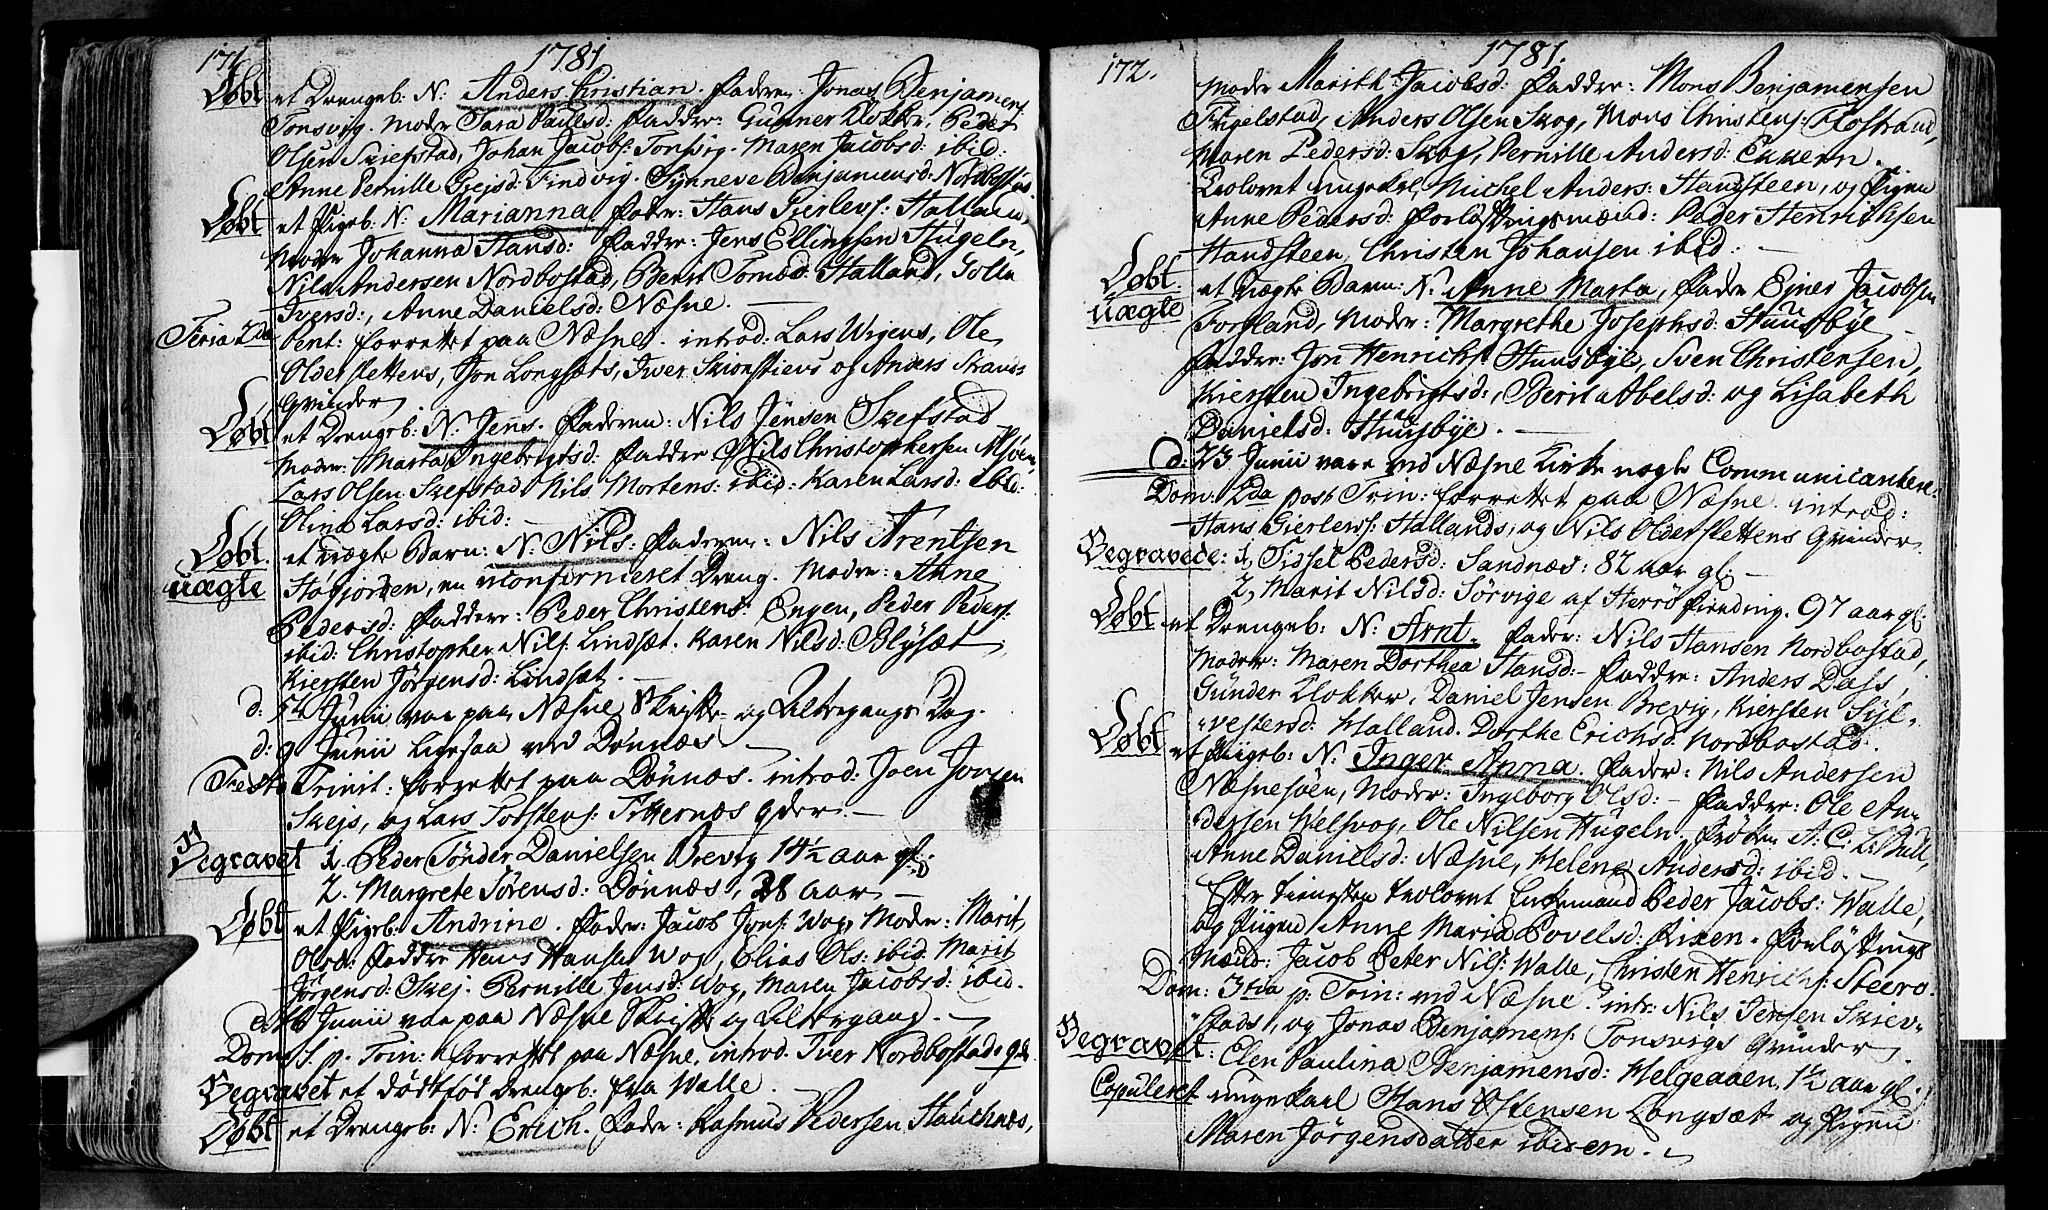 171.
1781
Døbt et Drengeb: N: Anders Christian. Faderen: Jonas Benjamens:
Tonsvig. Moder Sara Paulsd: Faddre: Gunner Klokker, Peder
Olsen Skiefstad, Johan Jacobs: Tonsvig. Maren Jacobsd: ibid:
Anne Pernille Sejsd: Findvig. Synneve Benjamensd: Nordbostad
Døbt et Pigeb: N: Marianna, Fader: Hans Gierlevs: Halland
Moder Johanna Hansd: Faddre: Jens Ellingsen Hugeln,
Nils Andersen Nordbostad, Berit Tomæd: Halland, Golla
Iversd:, Anne Danielsd: Næsne.
Feria 2da Pent: forrettet paa Næsne. introd: Lars Wigens, Ole
Olderslettens, Jon Longsæts, Iver Skionstiens og Anders Strands
Qvinder
Døbt et Drengeb: N: Jens. Faderen: Nils Jensen Skefstad
Moder: Marta Ingebrigtsd: Faddre Nils Christophersen Alsøen,
Lars Olsen Skefstad Nils Mortens: ibid: Karen Larsd: ibid:
Olina Larsd: ibid:
Døbt et uægte Barn: N: Nils: Faderen: Nils Arentsen
uægte Høgjorden, en uconfirmeret Dreng. Moder: Anne
Pedersd: Faddere: Peder Christens: Engen, Peder Peders:
ibid: Christopher Nils: Lindsæt. Karen Nilsd: Blysæt
Kiersten Jørgensd: Lindsæt.
d: 5te Junii var paa Næsne Skrifte- og Altergangs Dag.
d: 9 Junii ved Dønnæs
Festo Trinit: forrettet paa Dønnæs. introd: Joen Jonsen
Skejs, og Lars Torstens: Titternæs Qder.
Begravet 1. Peder Tønder Danielsen Brevig 14½ aar gl:
2. Margrete Sørensd: Dønnæs, 28 aar
Døbt et Pigeb: Andrine. Fader: Jacob Jons: Wog, Moder: Marit
Olsd: Faddre Hans Hansen Wog, Elias Ols: ibid. Marit
Jørgensd: Skej. Pernille Jensd: Wog, Maren Jacobsd: ibid.
Junii var paa Næsne Skrifte og Altergang.
Dom: 1. p. Trin: forrettet paa Næsne, introd. Iver Nordbostads qde.
Begravet et dødfød Drengeb: fra Walle.
Døbt et Drengeb: N: Erich. Fader: Rasmus Pedersen Hauchnæs,
172.
1781.
Moder Marith Jacobsd: Faddre: Mons Benjamensen
Figelstad, Anders Olsen Skog, Mons Christens: Flostrand,
Maren Pedersd: Skog, Pernille Andersd:
Trolovet ungekarl, Michel Anders: Handsteen, og Pigen
Anne Pedersd: Forløftningsmænd: Peder Henrichsen
Handsteen, Christen Johansen ibid:
Døbt et uægte Barn: N: Anne Marta, Fader Einer Jacobsen
uægte Forsland, Moder: Margrethe Josephsd: Huusbye
Faddre: Jon Henrichs: Huusbye, Sven Christensen,
Kiersten Ingebrigtsd:, Berit Abelsd: og Lisabeth
Danielsd: Huusbye.
d: 23 Junii vare ved Næsne Kirke nogle Communicantere.
Dom: 2da post Trin: forrettet paa Næsne. introd:
Hans Gierlevs: Hallands, og Nils Olderslettens Qvinder
Begravede: 1, Sidsel Pedersd: Sandnæs: 82 aar gl:
2, Marit Nilsd: Sørvige af Herrø fierding. 97 aar gl:
Døbt et Drengeb: N: Arnt. Fader: Nils Hansen Nordbostad,
Moder: Maren Dorthea Hansd: Faddre: Anders Dass,
Gunder Klokker, Daniel Jensen Brevig, Kiersten Syl-
vestersd: Halland. Dorthe Erichsd: Nordbostad.
Døbt et Pigeb: N: Inger Anna. Fader: Nils Andersen
Næsnesøen, Moder: Ingeborg Olsd: Faddre: Ole An-
dersen Welsvog, Ole Nilsen Hugeln. Frøken A: C: L: Bull,
Anne Danielsd: Næsne, Helene Andersd: ibid.
Efter tienesten trolovet Enkemand Peder Jacobs: Walle,
og Pigen Anne Maria Povelsd: Rixen. Forløftnings
Mænd: Jacob Peter Nils: Walle, Christen Henrichs: Steero.
Dom: 3tia p: Trin: ved Næsne intr: Nils Jensen Skiev-
stads, og Jonas Benjamens: Tonsvigs Qvinder
Begravet: Elen Paulina Benjamensd: Helgeaaen, 1½ aar gl:
Copuleret ungekarl Hans Ostensen Longsæt og Pigen
Maren Jørgensdatter ibidem.